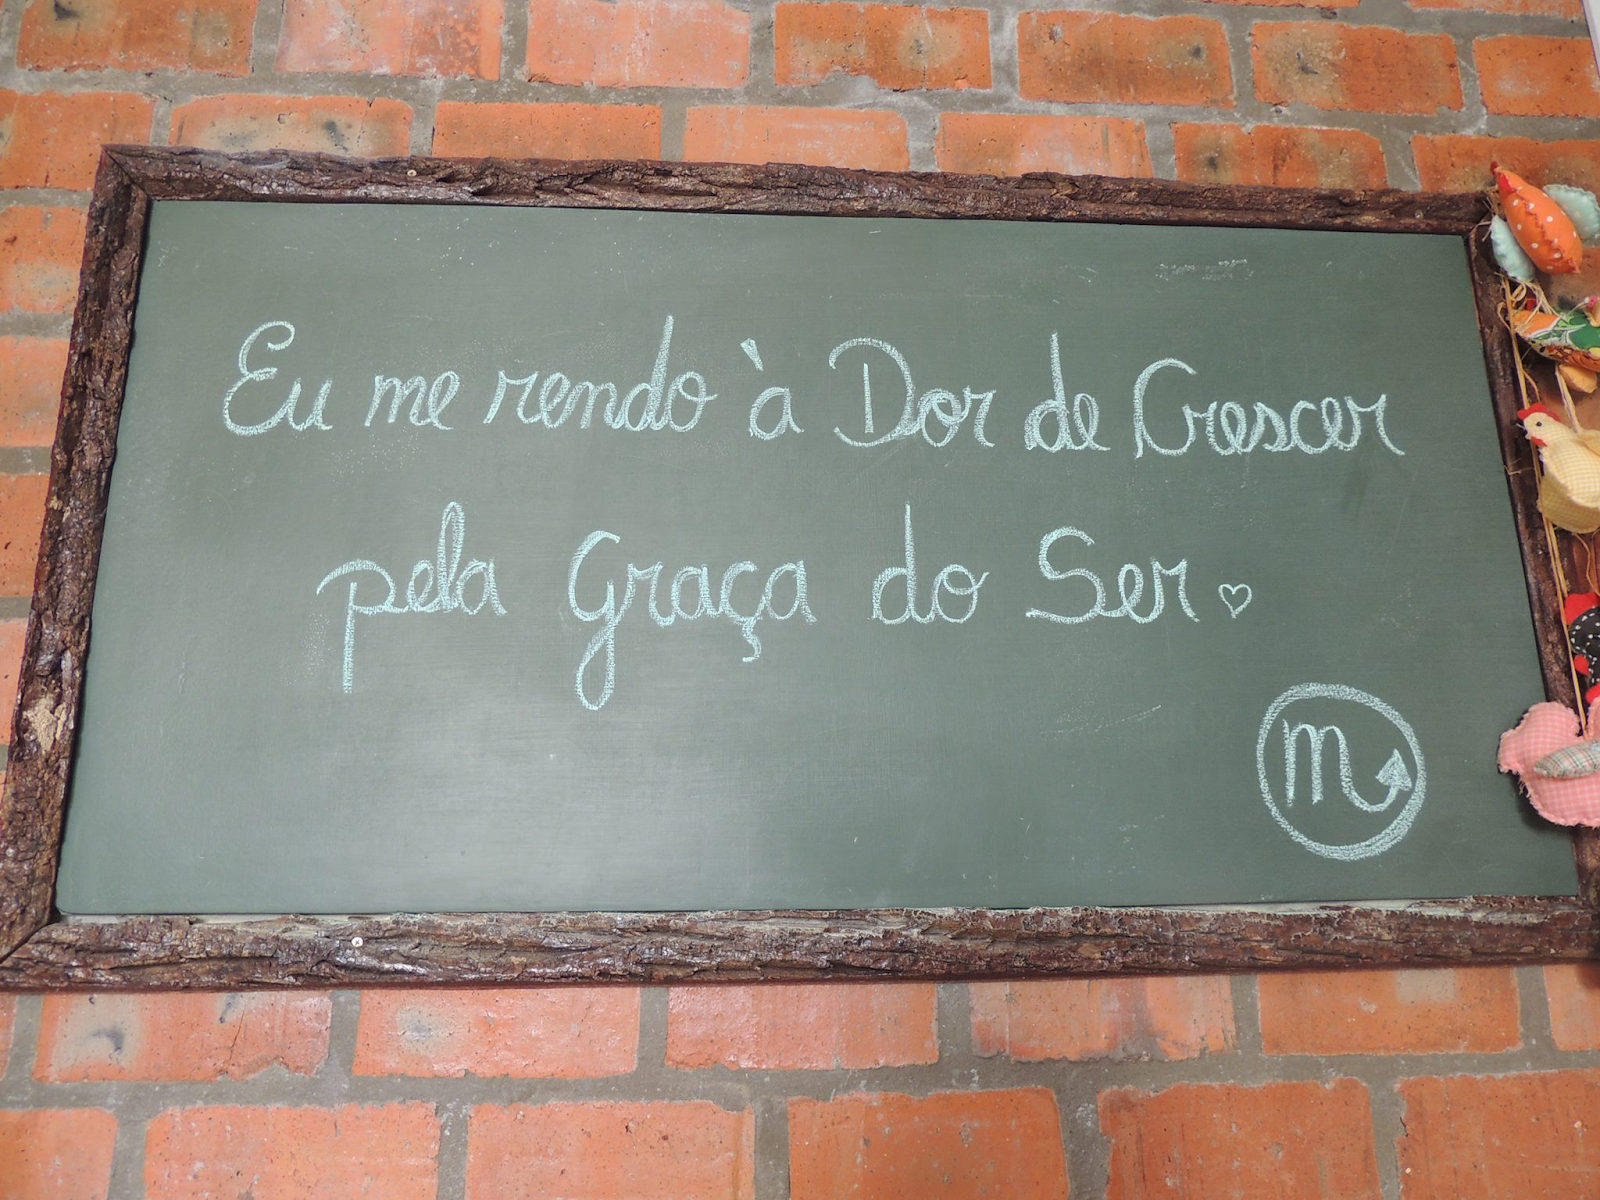 Eu me rendo à Dor de Crescer
pela Graça do Ser.